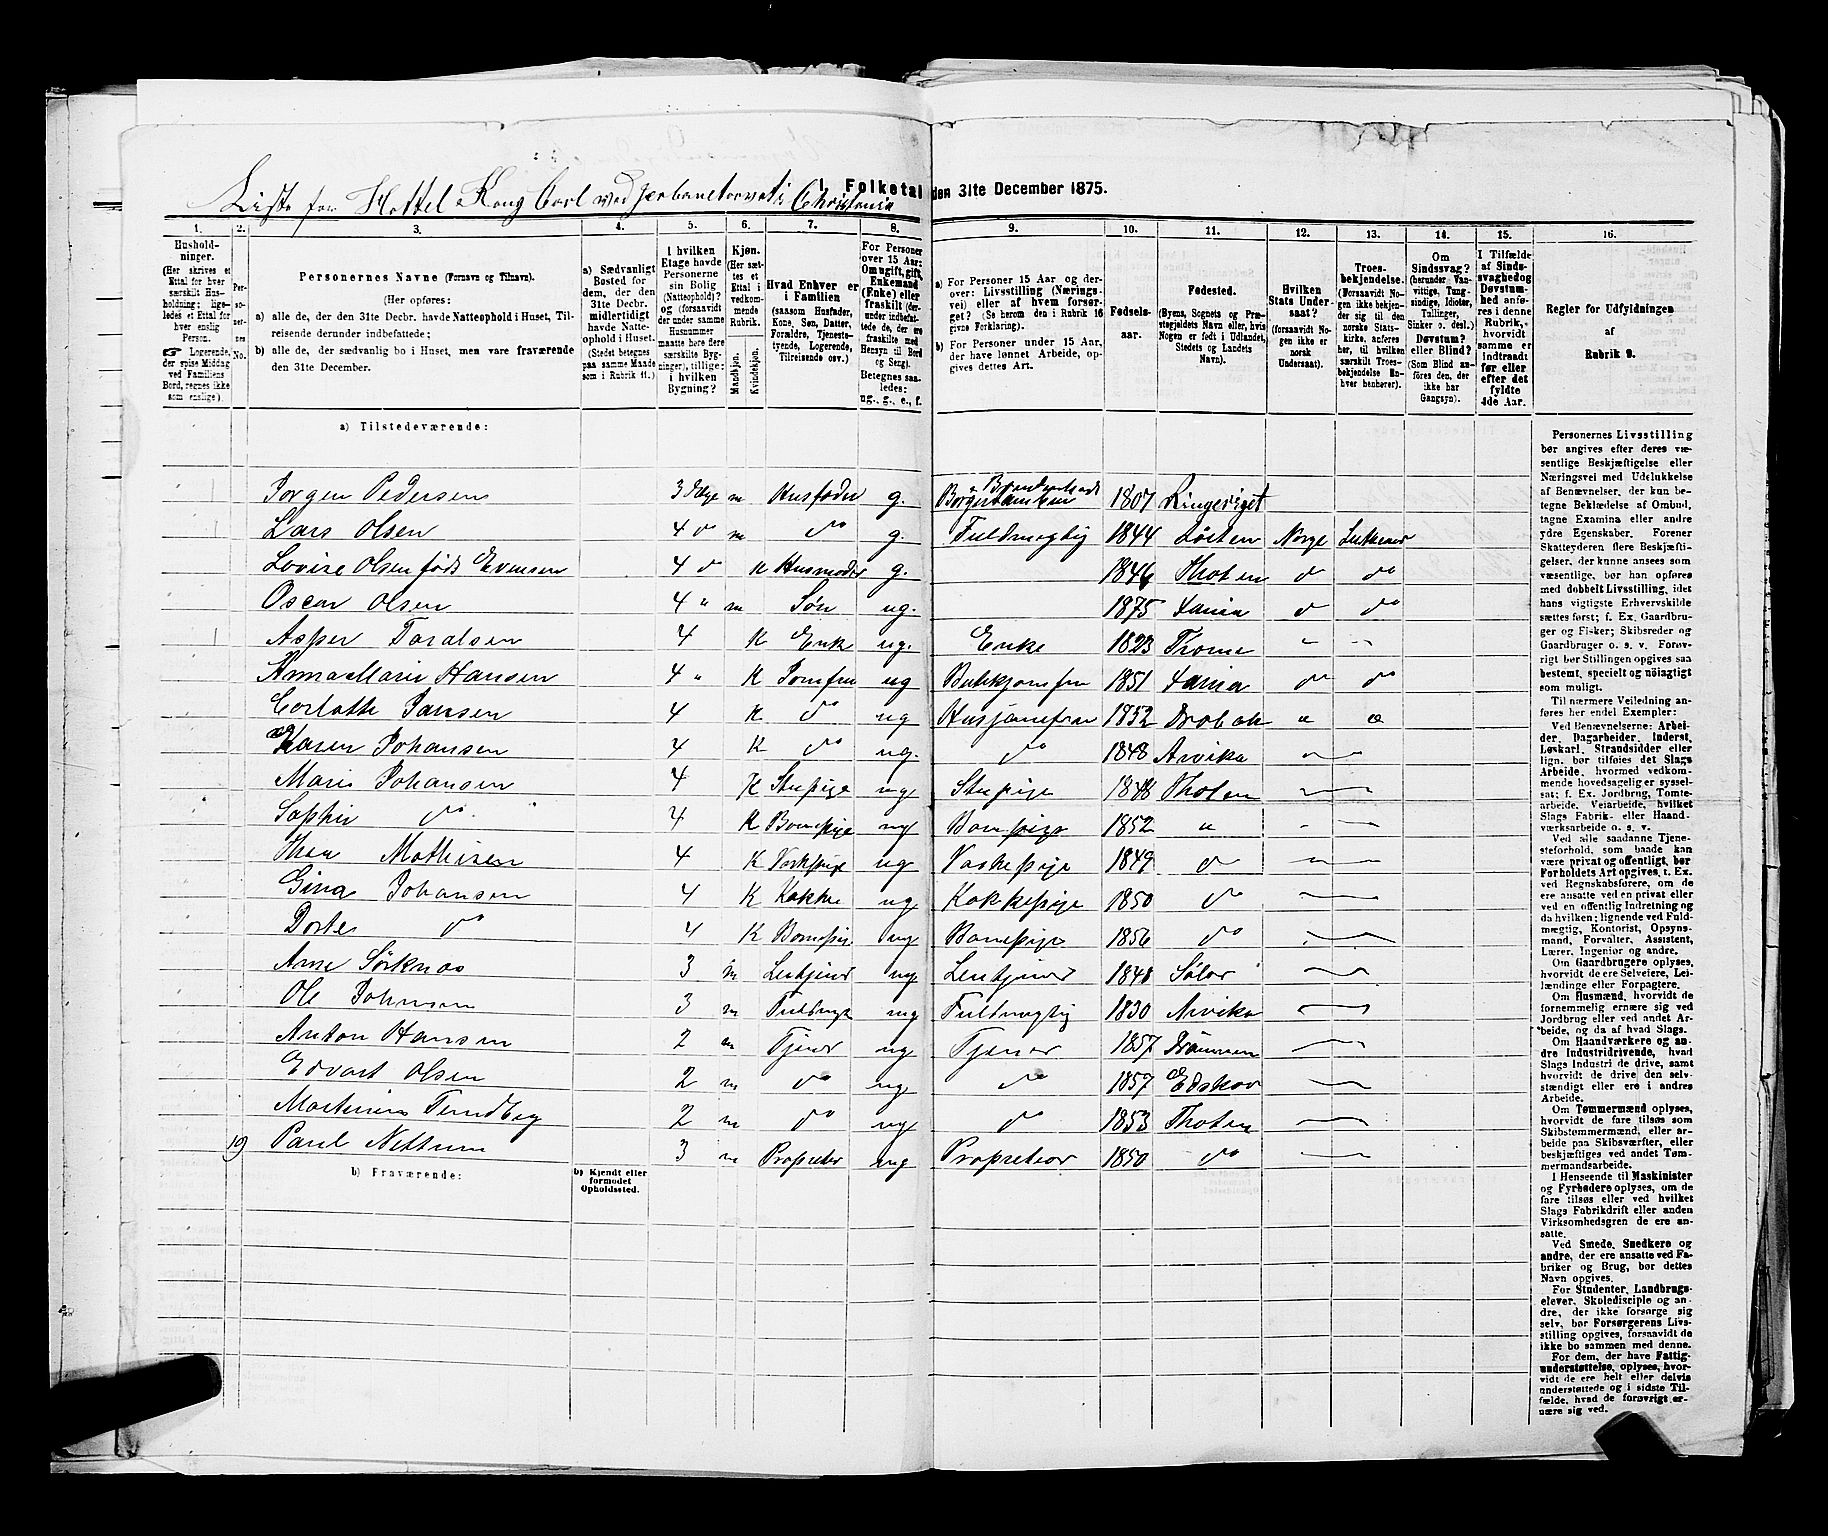 Liste for Hottel Kong Carl ved Jærbanetorvet i Christania
I. Folketal den 31te December 1875.
1. 2. 3. 4. 5. 6. 7. 8. 9. 10. 11. 12. 13. 14. 15. 16.
Hushold-
ninger.
(Her skrives et
Ettal for hver
særskilt Hus-
holdning; lige-
ledes et Ettal for
hver enslig
Person.
☞ Logerende,
der spise Middag
ved Familiens
Bord, regnes ikke
som enslige).
Per-
so-
ner-
nes
No.
Personernes Navne (Fornavn og Tilnavn).
(Her opføres:
a) alle de, der den 31te Decbr. havde Natteophold i Huset, Til-
reisende derunder indbefattede;
b) alle de, der sædvanlig bo i Huset, men vare fraværende
den 31te December.
a) Sædvanligt
Bosted for
dem, der den
31te Decbr.
midlertidigt
havde Natte-
ophold i Huset.
(Stedet betegnes
paa samme Maade
som i Rubrik 11.)
I hvilken
Etage havde
Personerne
sin Bolig
(Natteophold)?
og (forsaavidt
der under samme
Husnummer
maatte høre flere
særskilte Byg-
ninger), tillige:
i hvilken
Bygning?
Kjøn.
(Her sæt-
tes et
Ettal i
vedkom-
mende
Rubrik.
Mandkjøn.
Kvindekjøn.
Hvad Enhver er
i Familien
(saasom Husfader,
Kone, Søn, Datter,
Forældre, Tjeneste-
tyende, Logerende,
Tilreisende osv.)
For Personer
over 15 Aar:
Om ugift, gift,
Enkemand
(Enke) eller
fraskilt (der-
under indbefat-
tede de, der ere
fraskilte med
Hensyn til Bord
og Seng).
Betegnes saa-
ledes:
ug., g., e., f.
a) For Personer 15 Aar og der-
over: Livsstilling (Nærings-
vei) eller af hvem forsør-
get? (Se herom den i Rubrik 16
givne Forklaring).
b) For Personer under 15 Aar,
der have lønnet Arbeide, op-
gives dettes Art.
Fødsels-
aar.
Fødested.
(Byens, Sognets og Præ-
stegjeldets Navn eller, hvis
Nogen er født i Udlandet,
Stedets og Landets
Navn).
Hvilken
Stats Under-
saat?
(forsaavidt No-
gen ikke er
norsk
Undersaat).
Troes-
bekjendelse.
(Forsaavidt No-
gen ikke bekjen-
der sig til den
norske Stats-
kirke, anføres
her, til hvilken
særskilt Troes-
bekjendelse En-
hver henhører).
Om
Sindssvag?
(herunder Van-
vittige, Tung-
sindige, Idioter,
Tullinger,
Sinker o. desl.)
Døvstum?
eller Blind?
(Som Blind an-
føres den, der
ikke har
Gangsyn).
I Tilfælde
af Sinds-
svaghed og
Døvstum-
hed anfø-
res i denne
Rubrik,
hvorvidt
samme er
indtraadt
før eller
efter det
fyldte
4de Aar.
Regler for Udfyldningen
af
Rubrik 9.
a) Tilstedeværende:
Jorgen Pedersen 3 Etage m Husfader g. Borgerbandbevi 1807 Ringeriget
Lars Olsen 4 do m do g. Fuldmegtig 1844 Løiten Norge Lutheraner
Lovise Olsen føds Evensen 4 do K Husmoder g. 1846 Thoten do do
Oscar Olsen 4 " m Søn ug. 1875 Xania do do
Asper Toralsen 4 K Enke ug. Enke 1823 Tromø
Anna Marie Hansen 4 " K Jomfru ug Butikjomfru 1851 Xania do do
Corlotte Jansen 4 K do ug Husjomfru 1852 Drobak " "
Karen Johansen 4 K do ug. do 1848 Arvika
Marie Johansen 4 K Stupige ug Stupige 1848 Thoten
Sophie do 4 K Bornepige ug Bornpige 1852 "
Thea Mathisen 4 K Vaskepige ug Vaskepige 1849 do
Gina Johansen 4 K Kokke ug Kokkepige 1850 do
Dorte do 4 K Bornepige ug Bornepige 1856 do
Arne Sörknæs 3 m Leutjener ug Leutjener 1848 Sölør
Ole Johnsen 3 m Fuldmgt ug Fuldmegtig 1830 Arvika
Anton Hansen 2 m Tjener ug Tjener 1857 Drammen
Edvart Olsen 2 m do ug do 1857 Edskov
Martinius Tundberg 2 m do ug do 1853 Thoten
19 Paul Nettum 3 m Propretær ug Propretær 1850 do
b) Fraværende:
b) Kjendt eller
formodet
Opholdssted.
Personernes Livsstilling
bør angives efter deres væ-
sentlige Beskjæftigelse eller
Næringsvei med Udelukkelse
af Benævnelser, der kun be-
tegne Beklædelse af Ombud,
tagne Examina eller andre
ydre Egenskaber. Forener
Skatteyderen flere Beskjæfti-
gelser, der kunne ansees som
væsentlige, bør han opføres
med dobbelt Livsstilling, idet
hans vigtigste Erhvervskilde
sættes først; f. Ex. Gaardbru-
ger og Fisker; Skibsreder og
Gaardbruger o. s. v. Forøv-
rigt bør Stillingen opgives saa
bestemt, specielt og nøiagtigt
som muligt.
Til nærmere Veiledning an-
føres her endel Exempler:
Ved Benævnelserne: Arbei-
der, Dagarbeider, Inderst,
Løskarl, Strandsidder eller
lign. bør tilføies det Slags
Arbeide, hvormed vedkom-
mende hovedsagelig er syssel-
sat; f. Ex. Jordbrug, Tomte-
arbeide, Veiarbeide, hvilket
Slags Fabrik- eller Haand-
værksarbeide o. s. v.
Ved alle saadanne Tjene-
steforhold, som baade kan
være privat og offentligt, bør
Forholdets Art opgives, t. Ex.
ved Regnskabsførere, om de
ere ansatte ved en privat eller
ved en offentlig Indretning og
da hvilken; lignende ved Fuld-
mægtig, Kontorist, Opsyns-
mand, Forvalter, Assistent,
Lærer, Ingeniør og andre.
Om Gaardbrugere oplyses,
hvorvidt de ere Selveiere, Lei-
lændinge eller Forpagtere.
Om Husmænd, hvorvidt de
fornemmelig ernære sig ved
Jordbrug eller ved andet Ar-
beide, og da af hvad Slags.
Om Haandværkere og an-
dre Industridrivende, hvad
Slags Industri de drive, samt
hvorvidt de drive den selv-
stændigt eller ere i andres
Arbeide.
Om Tømmermænd oplyses,
hvorvidt de fare tilsøs som
Skibstømmermænd, eller ar-
beide paa Skibsværfter, eller
beskjæftiges ved andet Tøm-
mermandsarbeide.
I Henseende til Maskinister
og Fyrbødere oplyses, om de
fare tilsøs eller ved hvilket
Slags Fabrikdrift eller anden
Virksomhedsgren de ere an-
satte.
Ved Smede, Snedkere og
andre, der ere ansatte ved Fa-
briker og Brug, bør dettes
Navn opgives.
For Studenter, Landbrugs-
elever, Skoledisciple og an-
dre, der ikke forsørge sig
selv, bør Forsørgerens Livs-
stilling opgives, forsaavidt de
ikke bo sammen med denne.
For dem, der have Fattig-
understøttelse, oplyses, hvor-
vidt de ere helt eller delvis
understøttede og i sidste Til-
fælde, hvad de forøvrigt er-
nære sig ved.